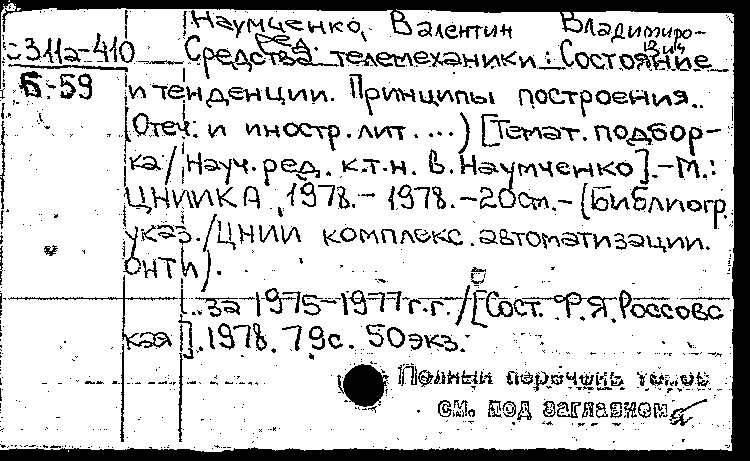 Наумченко, Валентин Владимиро-
вич ред.
с311а-410 Средства телемеханики: Состояние
Б-59 и тенденции. Принципы построения..
(Отеч. и иностр. лит. ...) [Темат. подбор-
ка / Науч. ред. к.т.н. В. Наумченко]. - М.:
ЦНИИКА, 1978. - 1978. - 20см. - (Библиогр.
указ. / ЦНИИ комплекс. автоматизации.
ОНТИ).
...за 1975-1977 г.г. / [Сост. Ф.Я. Россовс
кая]. 1978. 79с. 50экз.
Полный перечень томов
см. под заглавием